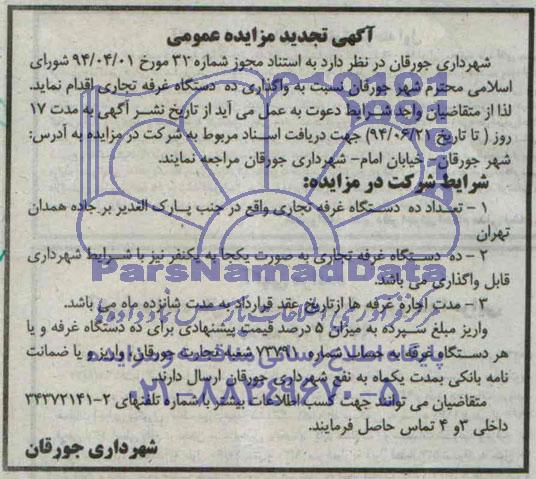 آگهی تجدید مزایده عمومی
شهرداری جورقان در نظر دارد به استناد مجوز شماره ۳۲ مورخ ۹۴/۰۴/۰۱ شورای
اسلامی محترم شهر جورقان نسبت به واگذاری ده دستگاه غرفه تجاری اقدام نماید.
لذا از متقاضیان واجد شرایط دعوت به عمل می آید از تاریخ نشر آگهی به مدت ۱۷
روز ( تا تاریخ ۹۴/۰۶/۲۱) جهت دریافت اسناد مربوط به شرکت در مزایده به آدرس:
شهر جورقان - خیابان امام– شهرداری جورقان مراجعه نمایند.
شرایط شرکت در مزایده:
۱ – تعداد ده دستگاه غرفه تجاری واقع در جنب پارک الغدیر بر جاده همدان
تهران
۲ – ده دستگاه غرفه تجاری به صورت یکجا به یکنفر نیز با شرایط شهرداری
قابل واگذاری می باشد.
ParsNamadData
۳ – مدت اجاره غرفه ها از تاریخ عقد قرارداد به مدت شانزده ماه می باشد.
واریز مبلغ سپرده به میزان ۵ درصد قیمت پیشنهادی برای ده دستگاه غرفه و یا
هر دستگاه غرفه به حساب شماره ۷۳۷۹۱۰ شعبه تجارت جورقان، واریز و یا ضمانت
نامه بانکی بمدت یکماه به نفع شهرداری جورقان ارسال دارند.
۰۲۱-۸۸۳۴۹۶۷۰-۵
متقاضیان می توانند جهت کسب اطلاعات بیشتر با شماره تلفنهای ۲–۳۴۳۷۲۱۴۱
داخلی ۳ و ۴ تماس حاصل فرمایند.
شهرداری جورقان